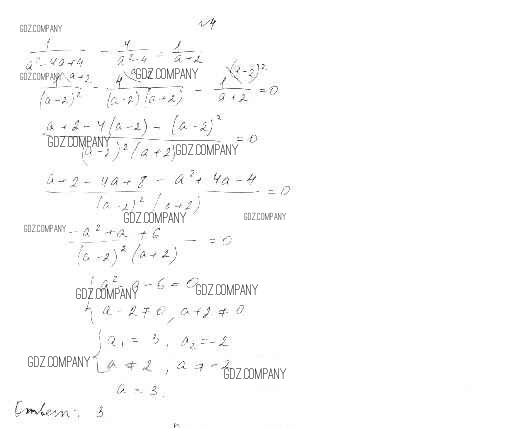 №4
GDZ.COMPANY
1/(a²-4a+4) - 4/(a²-4) = 1/(a+2)
GDZ.COMPANY GDZ.COMPANY
1^(a+2)/(a-2)² - 4/((a-2)(a+2)) - 1^((a-2)²)/(a+2) = 0
(a+2-4(a-2)-(a-2)²)/((a-2)²(a+2)) = 0
GDZ.COMPANY GDZ.COMPANY
(a+2-4a+8-a²+4a-4)/((a-2)²(a+2)) = 0
GDZ.COMPANY GDZ.COMPANY
GDZ.COMPANY
(-a²+a+6)/((a-2)²(a+2)) = 0
{ a²-a-6=0
GDZ.COMPANY GDZ.COMPANY
a-2≠0, a+2≠0
{ a₁=3, a₂=-2
a≠2, a≠-2
GDZ.COMPANY GDZ.COMPANY
a=3.
Ответ: 3